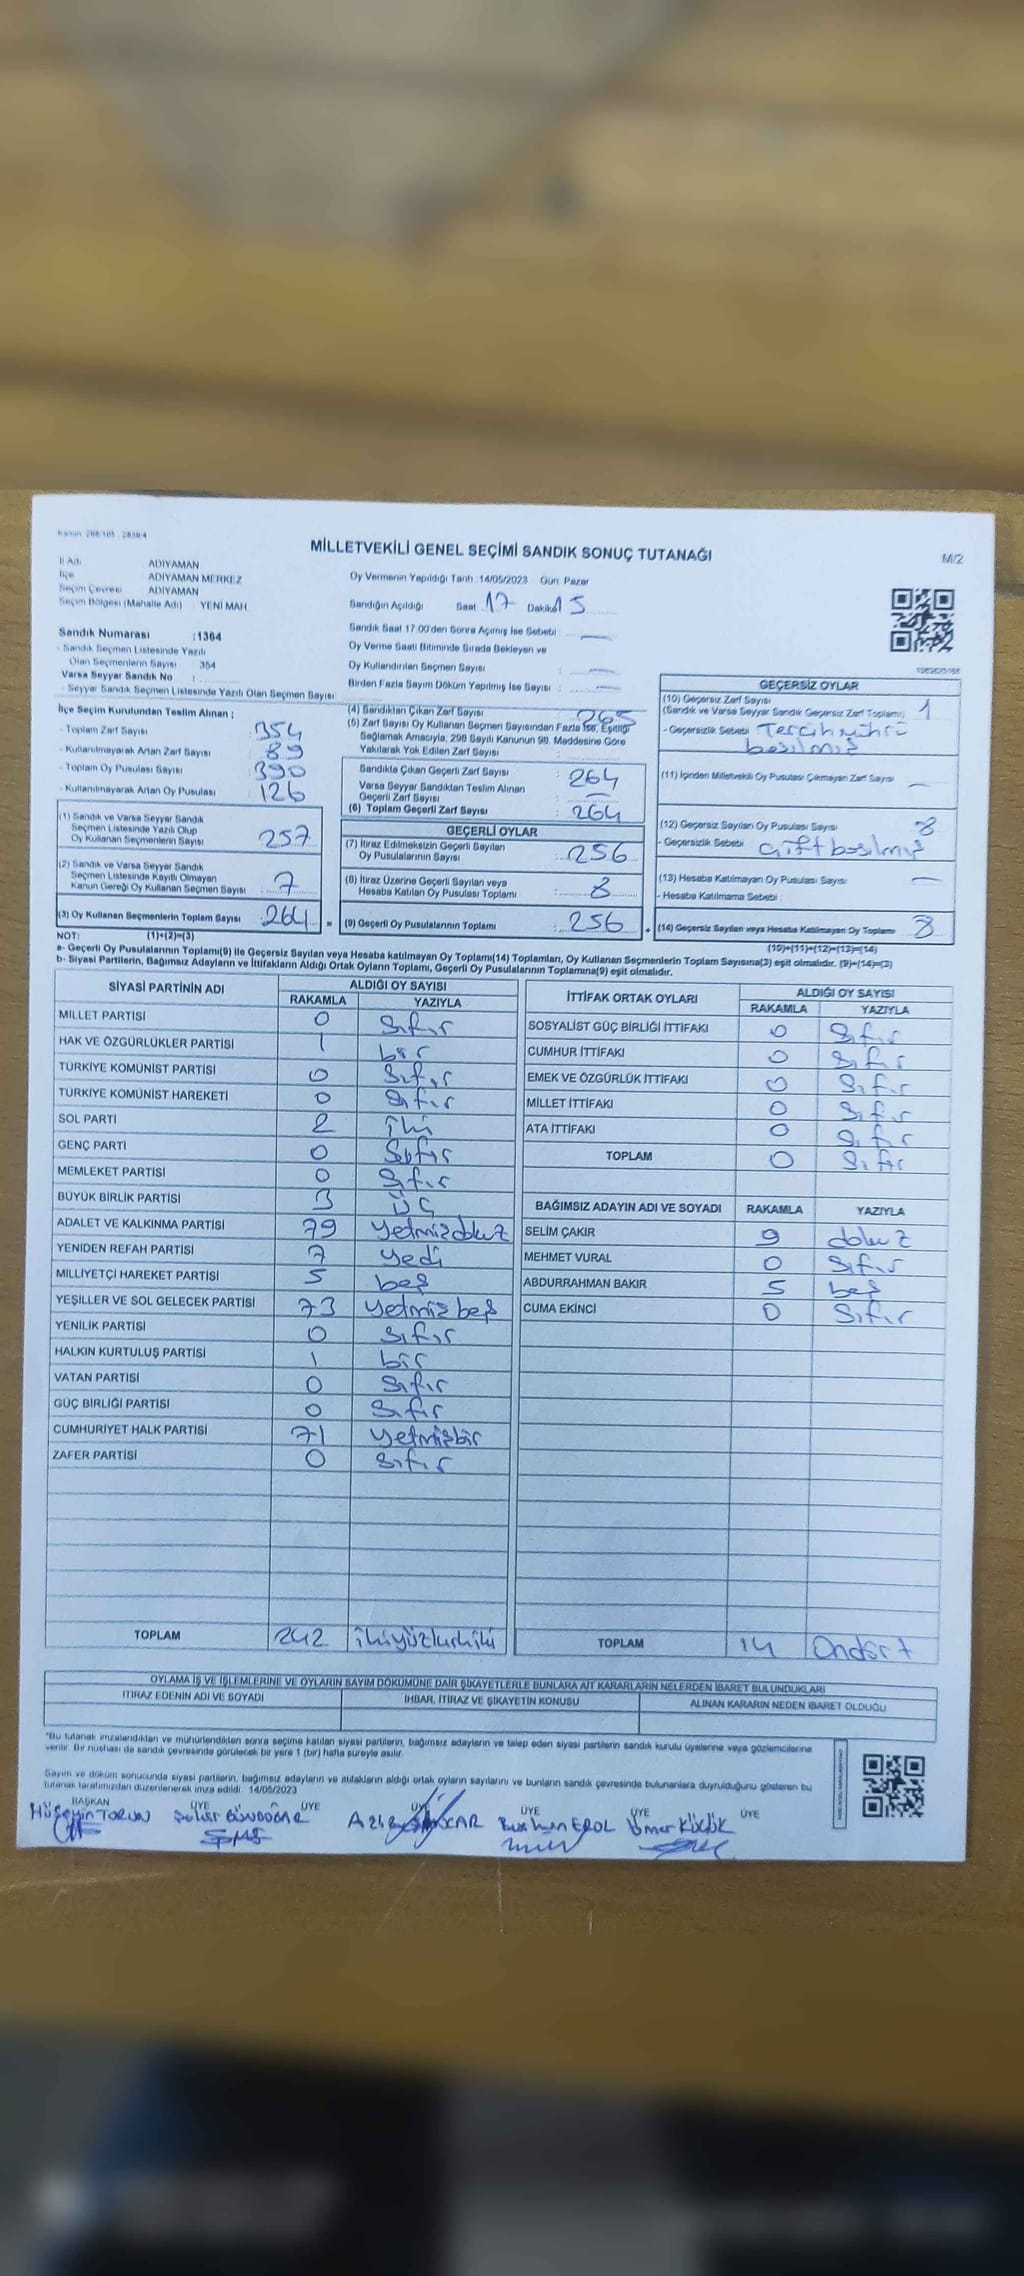 Kanun: 298/105 - 2839/4
MİLLETVEKİLİ GENEL SEÇİMİ SANDIK SONUÇ TUTANAĞI
M/2
İl Adı ADIYAMAN
İlçe ADIYAMAN MERKEZ
Seçim Çevresi ADIYAMAN
Seçim Bölgesi (Mahalle Adı) YENİ MAH
Oy Vermenin Yapıldığı Tarih :14/05/2023 Gün Pazar
Sandığın Açıldığı Saat 17 Dakika 15
Sandık Saat 17:00'den Sonra Açılmış İse Sebebi : —
Oy Verme Saati Bitiminde Sırada Bekleyen ve
Oy Kullandırılan Seçmen Sayısı : —
Birden Fazla Sayım Döküm Yapılmış İse Sayısı : —
Sandık Numarası :1364
- Sandık Seçmen Listesinde Yazılı
Olan Seçmenlerin Sayısı : 354
Varsa Seyyar Sandık No :
- Seyyar Sandık Seçmen Listesinde Yazılı Olan Seçmen Sayısı:
İlçe Seçim Kurulundan Teslim Alınan ;
- Toplam Zarf Sayısı : 354
- Kullanılmayarak Artan Zarf Sayısı : 89
- Toplam Oy Pusulası Sayısı : 390
- Kullanılmayarak Artan Oy Pusulası : 126
(1) Sandık ve Varsa Seyyar Sandık
Seçmen Listesinde Yazılı Olup
Oy Kullanan Seçmenlerin Sayısı : 257
(2) Sandık ve Varsa Seyyar Sandık
Seçmen Listesinde Kayıtlı Olmayan
Kanun Gereği Oy Kullanan Seçmen Sayısı : 7
(3) Oy Kullanan Seçmenlerin Toplam Sayısı : 264 =
(4) Sandıktan Çıkan Zarf Sayısı : 265
(5) Zarf Sayısı Oy Kullanan Seçmen Sayısından Fazla İse, Eşitliği
Sağlamak Amacıyla, 298 Sayılı Kanunun 98. Maddesine Göre
Yakılarak Yok Edilen Zarf Sayısı :
Sandıkta Çıkan Geçerli Zarf Sayısı : 264
Varsa Seyyar Sandıktan Teslim Alınan
Geçerli Zarf Sayısı : —
(6) Toplam Geçerli Zarf Sayısı : 264
GEÇERLİ OYLAR
(7) İtiraz Edilmeksizin Geçerli Sayılan
Oy Pusulalarının Sayısı : 256
(8) İtiraz Üzerine Geçerli Sayılan veya
Hesaba Katılan Oy Pusulası Toplamı : 8
(9) Geçerli Oy Pusulalarının Toplamı : 256 +
GEÇERSİZ OYLAR
(10) Geçersiz Zarf Sayısı : 1
(Sandık ve Varsa Seyyar Sandık Geçersiz Zarf Toplamı)
- Geçersizlik Sebebi : Tercih mührü
basılmış
(11) İçinden Milletvekili Oy Pusulası Çıkmayan Zarf Sayısı : —
(12) Geçersiz Sayılan Oy Pusulası Sayısı : 8
- Geçersizlik Sebebi : Çift basılmış
(13) Hesaba Katılmayan Oy Pusulası Sayısı : —
- Hesaba Katılmama Sebebi :
(14) Geçersiz Sayılan veya Hesaba Katılmayan Oy Toplamı : 8
NOT: (1)+(2)=(3) (10)+(11)+(12)+(13)=(14)
a- Geçerli Oy Pusulalarının Toplamı(9) ile Geçersiz Sayılan veya Hesaba katılmayan Oy Toplamı(14) Toplamları, Oy Kullanan Seçmenlerin Toplam Sayısına(3) eşit olmalıdır. (9)+(14)=(3)
b- Siyasi Partilerin, Bağımsız Adayların ve İttifakların Aldığı Ortak Oyların Toplamı, Geçerli Oy Pusulalarının Toplamına(9) eşit olmalıdır.
SİYASİ PARTİNİN ADI ALDIĞI OY SAYISI
RAKAMLA YAZIYLA
MİLLET PARTİSİ 0 Sıfır
HAK VE ÖZGÜRLÜKLER PARTİSİ 1 bir
TÜRKİYE KOMÜNİST PARTİSİ 0 Sıfır
TÜRKİYE KOMÜNİST HAREKETİ 0 Sıfır
SOL PARTİ 2 iki
GENÇ PARTİ 0 Sıfır
MEMLEKET PARTİSİ 0 Sıfır
BÜYÜK BİRLİK PARTİSİ 3 ÜÇ
ADALET VE KALKINMA PARTİSİ 79 Yetmişdokuz
YENİDEN REFAH PARTİSİ 7 yedi
MİLLİYETÇİ HAREKET PARTİSİ 5 beş
YEŞİLLER VE SOL GELECEK PARTİSİ 73 yetmiş beş
YENİLİK PARTİSİ 0 Sıfır
HALKIN KURTULUŞ PARTİSİ 1 bir
VATAN PARTİSİ 0 Sıfır
GÜÇ BİRLİĞİ PARTİSİ 0 Sıfır
CUMHURİYET HALK PARTİSİ 71 yetmişbir
ZAFER PARTİSİ 0 Sıfır
TOPLAM 242 ikiyüzkırkiki
İTTİFAK ORTAK OYLARI ALDIĞI OY SAYISI
RAKAMLA YAZIYLA
SOSYALİST GÜÇ BİRLİĞİ İTTİFAKI 0 Sıfır
CUMHUR İTTİFAKI 0 Sıfır
EMEK VE ÖZGÜRLÜK İTTİFAKI 0 Sıfır
MİLLET İTTİFAKI 0 Sıfır
ATA İTTİFAKI 0 Sıfır
TOPLAM 0 Sıfır
BAĞIMSIZ ADAYIN ADI VE SOYADI RAKAMLA YAZIYLA
SELİM ÇAKIR 9 dokuz
MEHMET VURAL 0 Sıfır
ABDURRAHMAN BAKIR 5 beş
CUMA EKİNCİ 0 Sıfır
TOPLAM 14 Ondört
OYLAMA İŞ VE İŞLEMLERİNE VE OYLARIN SAYIM DÖKÜMÜNE DAİR ŞİKAYETLERLE BUNLARA AİT KARARLARIN NELERDEN İBARET BULUNDUKLARI
İTİRAZ EDENİN ADI VE SOYADI İHBAR, İTİRAZ VE ŞİKAYETİN KONUSU ALINAN KARARIN NEDEN İBARET OLDUĞU
"Bu tutanak imzalandıktan ve mühürlendikten sonra seçime katılan siyasi partilerin, bağımsız adayların ve talep eden siyasi partilerin sandık kurulu üyelerine veya gözlemcilerine
verilir. Bir nüshası da sandık çevresinde görülecek bir yere 1 (bir) hafta süreyle asılır.
Sayım ve döküm sonucunda siyasi partilerin, bağımsız adayların ve ittifakların aldığı ortak oyların sayılarını ve bunların sandık çevresinde bulunanlara duyrulduğunu gösteren bu
tutanak tarafımızdan düzenlenerek imza edildi. 14/05/2023
BAŞKAN ÜYE ÜYE ÜYE ÜYE ÜYE ÜYE
Hüseyin TORUN GÜNDOĞAR EROL Ömer Küçük